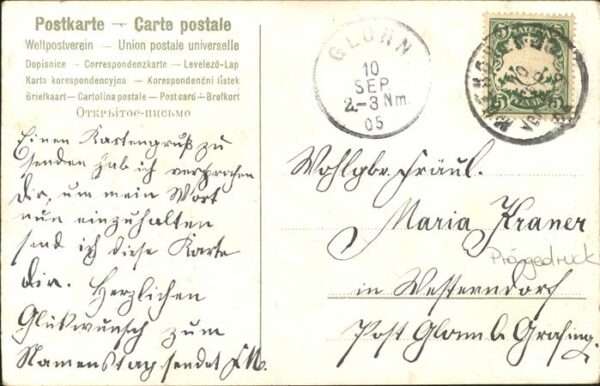 Postkarte — Carte postale
Weltpostverein — Union postale universelle
Dopisnice - Correspondenzkarte - Levelező-Lap
Karta korespondencyjna - Korespondenční lístek
Briefkaart - Cartolina postale - Postcard - Brefkort
Открытое-письмо
GLONN
10
SEP
2-3 Nm.
05
BAYERN
5 5
PFENNIG
Einen Kartengruß zu
senden hab ich versprochen
Dir, um mein Wort
nun einzuhalten
send ich diese Karte
dir. Herzlichen
Glükwunsch zum
Namenstag sendet
Wohlgb. Fräul.
Maria Kraner
Prägedruck
in Westerndorf
Post Glonn b. Grafing.